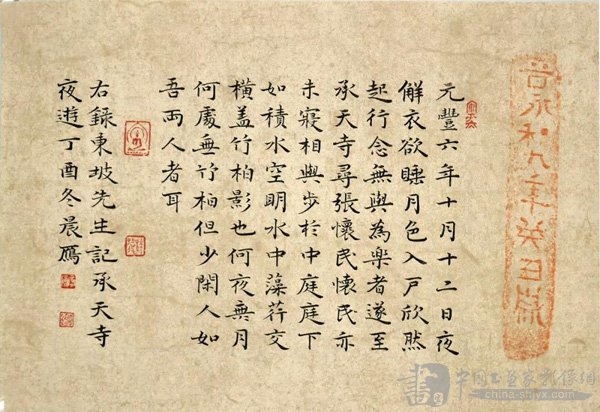 晉永和九年
元豐六年十月十二日夜
解衣欲睡月色入戶欣然
起行念無與為樂者遂至
承天寺尋張懷民懷民亦
未寢相與步於中庭庭下
如積水空明水中藻荇交
橫盖竹柏影也何夜無月
何處無竹柏但少閑人如
吾兩人者耳
右録東坡先生記承天寺
夜遊丁酉冬晨鴈
書
中国书画家影像網
china-shjyx.com